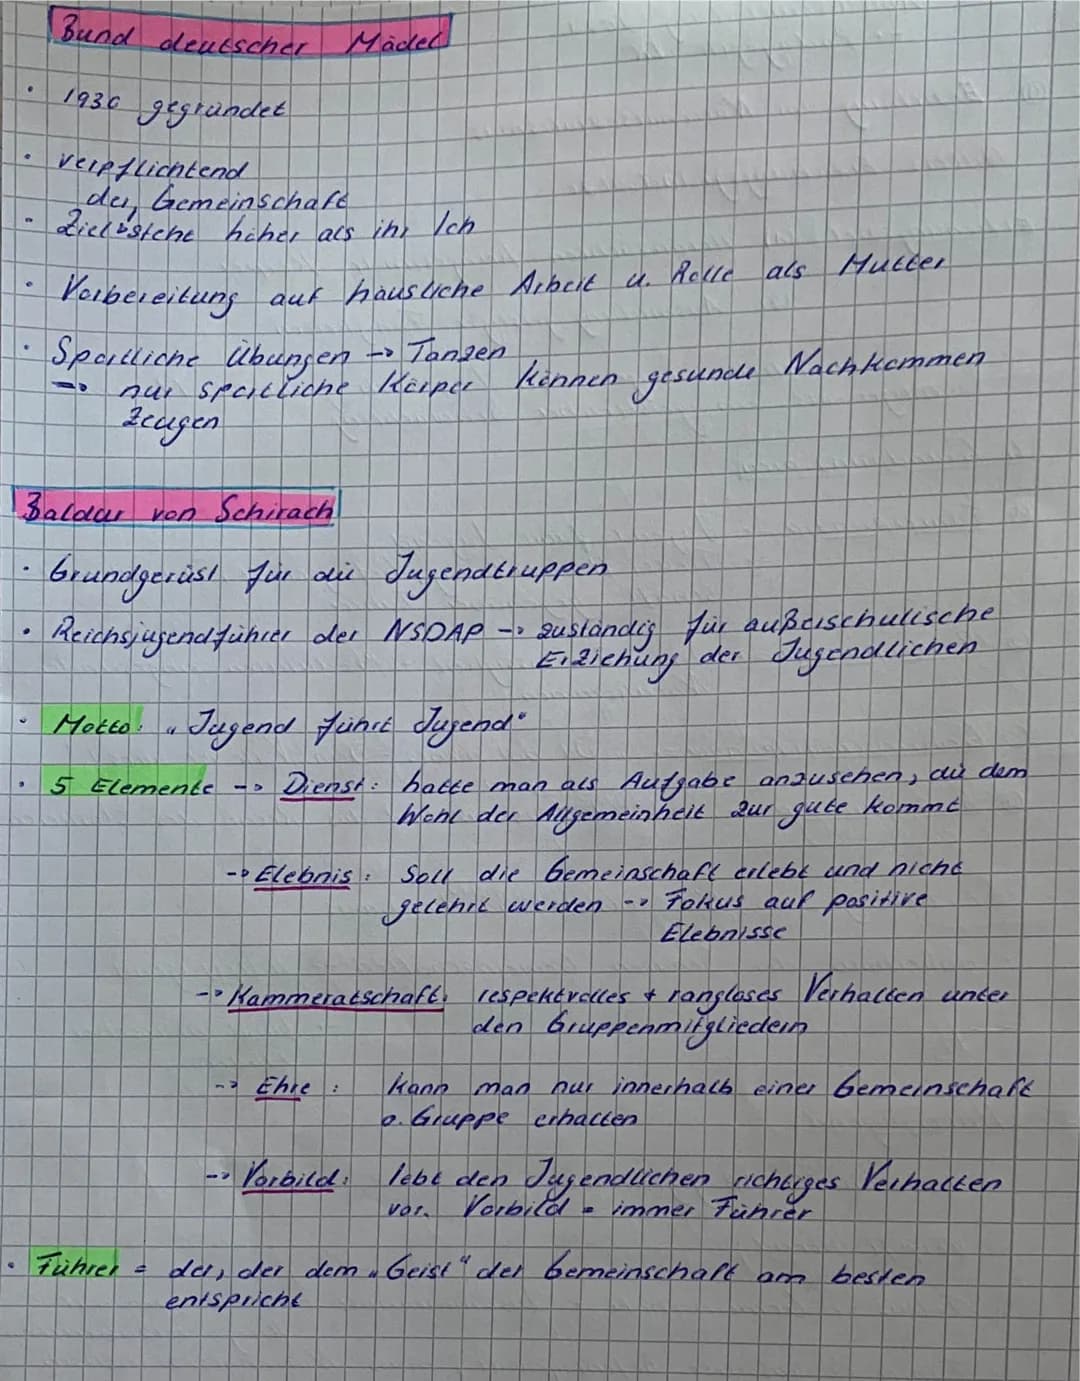 Bund deutscher Mädel
• 1930 gegründet
• verpflichtend
der Gemeinschaft
• Ziel steht höher als ihr Ich
• Vorbereitung auf häusliche Arbeit u. Rolle als Mutter
• Sportliche Übungen → Tanzen
→ nur sportliche Körper können gesunde Nachkommen
zeugen
Baldur von Schirach
• Grundgerüst für die Jugendtruppen
• Reichsjugendführer der NSDAP → zuständig für außerschulische
Erziehung der Jugendlichen
• Motto: „Jugend führt Jugend"
• 5 Elemente → Dienst: hatte man als Aufgabe anzusehen, die dem
Wohl der Allgemeinheit zur gute kommt
→ Elebnis: Soll die Gemeinschaft erlebt und nicht
gelehrt werden → Fokus auf positive
Elebnisse
→ Kammeratschaft: respektvolles + rangloses Verhalten unter
den Gruppenmitgliedern
→ Ehre: kann man nur innerhalb einer Gemeinschaft
o. Gruppe erhalten
→ Vorbild: lebt den Jugendlichen richtiges Verhalten
vor. Vorbild = immer Führer
• Führer = der, der dem „Geist" der Gemeinschaft am besten
entspricht